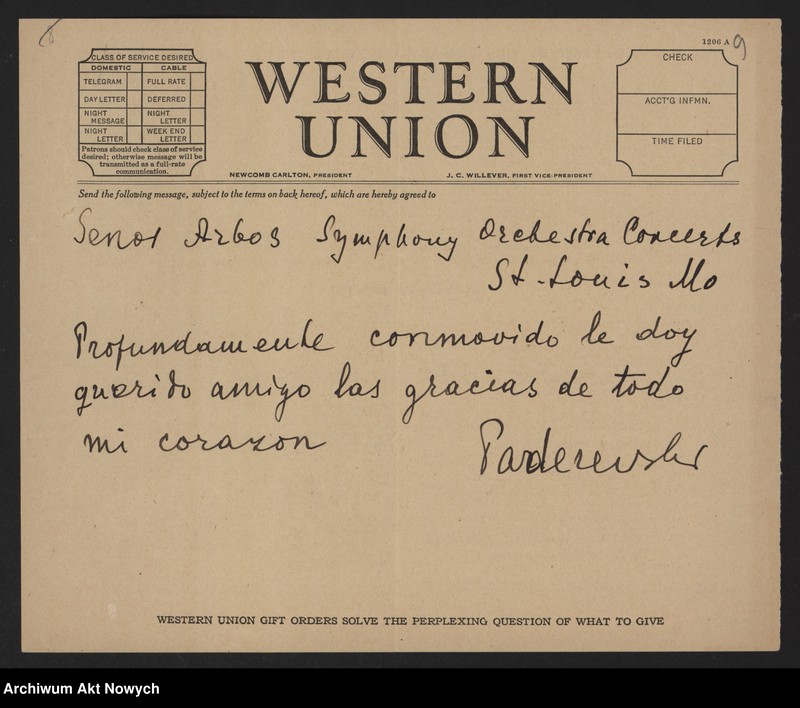 1206 A
9
CLASS OF SERVICE DESIRED
DOMESTIC CABLE
TELEGRAM FULL RATE
DAY LETTER DEFERRED
NIGHT MESSAGE NIGHT LETTER
NIGHT LETTER WEEK END LETTER
Patrons should check class of service
desired; otherwise message will be
transmitted as a full-rate
communication.
WESTERN
UNION
NEWCOMB CARLTON, PRESIDENT J. C. WILLEVER, FIRST VICE-PRESIDENT
CHECK
ACCT'G INFMN.
TIME FILED
Send the following message, subject to the terms on back hereof, which are hereby agreed to
Senor Arbos Symphony Orchestra Concerts
St. Louis Mo
Profundamente conmovido le doy
querido amigo las gracias de todo
mi corazon Paderewski
WESTERN UNION GIFT ORDERS SOLVE THE PERPLEXING QUESTION OF WHAT TO GIVE
Archiwum Akt Nowych